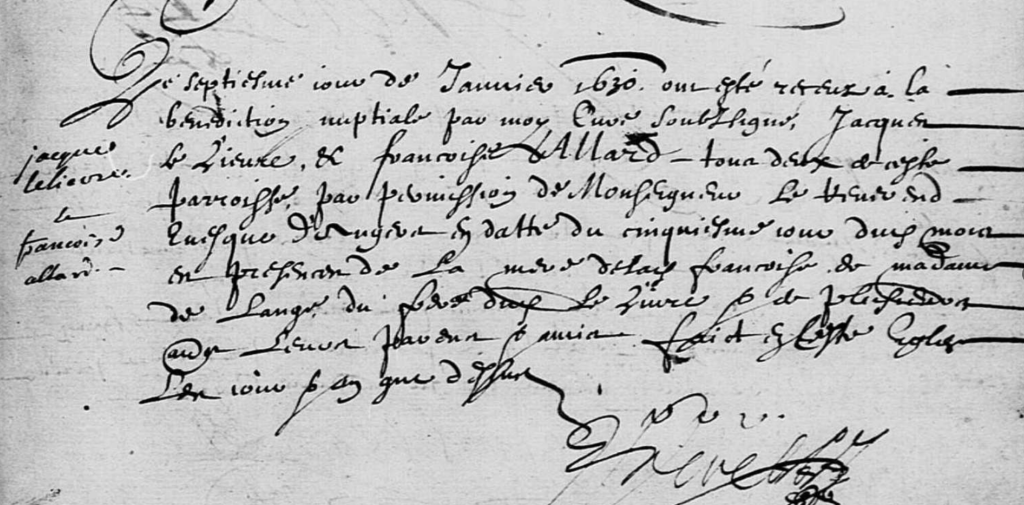 Le septiesme jour de Janvier 1630. ont esté receux a la
benediction nuptiale par moy Curé soubsigné, Jacques
Le Lievre, & francoise Allard – tous deux de ceste
parroisse par permission de Monseigneur le Reverend
Evesque d'Angers en datte du cinquiesme jour dud mois
en presence de La mere de lad francoise de madame
de Lange du frere dud Le Lievre & de plusieurs
aues Leurs parens & amis faict en ceste Eglise
Les jour & an que dessus
jacque
lelievre.
&
francoise
allard. –